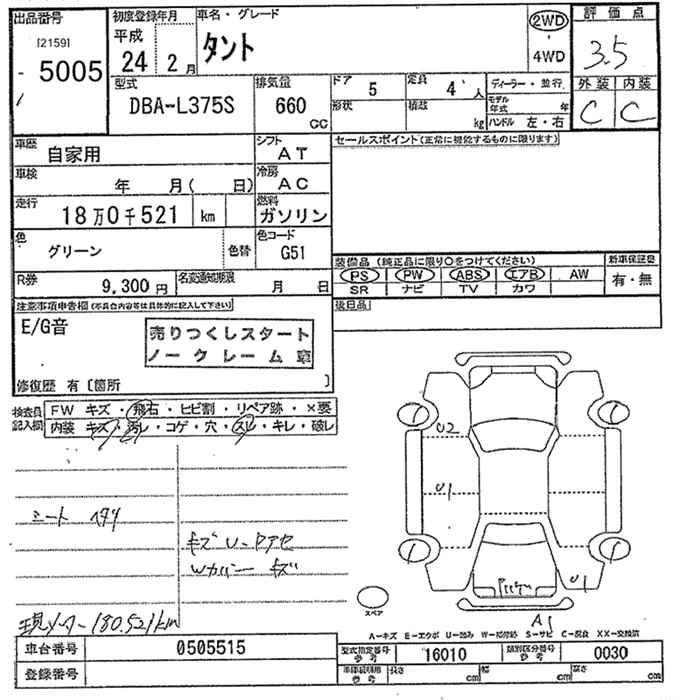 出品番号
[2159]
5005
初度登録年月
平成
24 2月
車名・グレード
タント
2WD
・
4WD
評価点
3.5
外装 内装
C C
型式
DBA-L375S
排気量
660
CC
ドア 5
形状
定員 4人
積載 kg
ディーラー・並行
モデル年式 年
ハンドル 左・右
車歴 自家用
シフト AT
セールスポイント(正常に機能するものに限ります)
車検 年 月( 日)
冷房 AC
走行 18万0千521 km
燃料 ガソリン
色 グリーン 色替
色コード G51
装備品 (純正品に限り○をつけてください)
PS PW ABS エアB AW
SR ナビ TV カワ
新車保証書
有・無
R券 9,300円
名変通知期限 月 日
後日品
注意事項申告欄(不具合内容等は具体的に記入して下さい)
E/G音
売りつくしスタート
ノークレーム車
修復歴 有〔箇所 〕
検査員記入欄
FW キズ・飛石・ヒビ割・リペア跡・×要
内装 キズ・汚レ・コゲ・穴・スレ・キレ・破レ
シート
キズ U-
Wカバー キズ
現メーター180.521km
U2
U1
U1
A1
スペア
A-キズ E-エクボ U-凹み W-補修跡 S-サビ C-腐食 XX-交換済
車台番号 0505515
登録番号
型式指定番号参考 16010
類別区分番号参考 0030
長さ cm 幅 cm 高さ cm